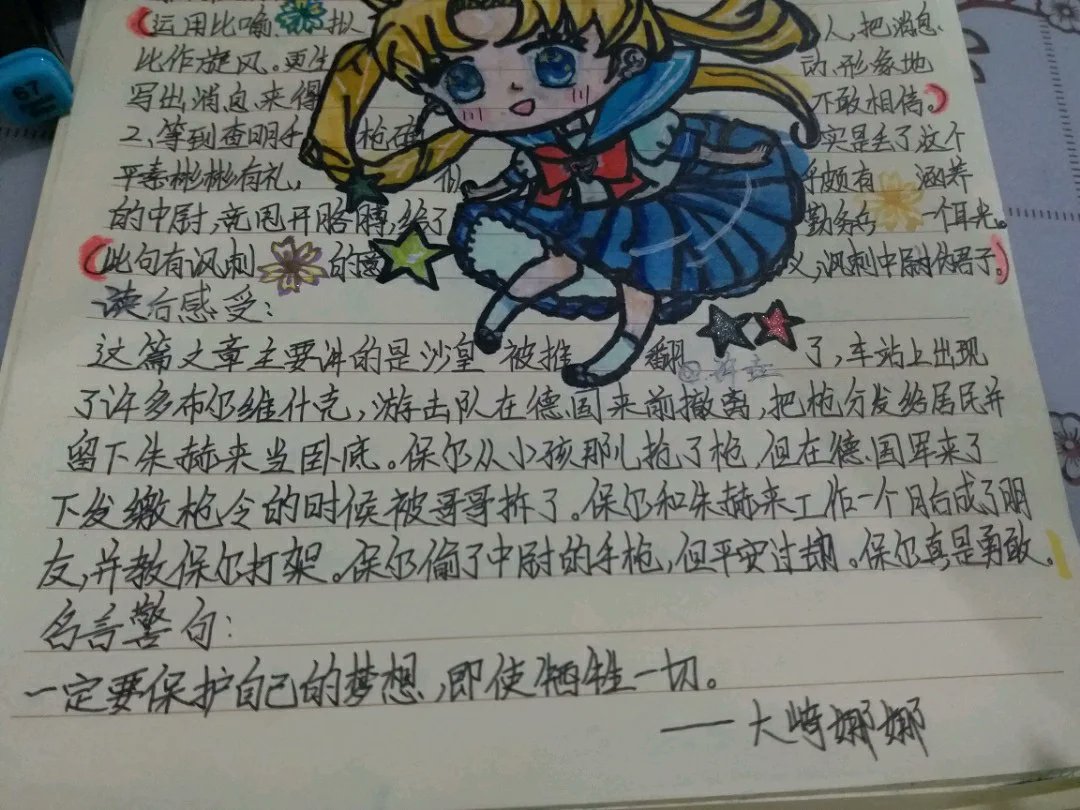 (运用比喻 拟 人,把消息
比作旋风。更生 动、形象地
写出消息来得 不敢相信。)
2、等到查明手 枪确 实是丢了这个
平素彬彬有礼, 似 乎颇有 涵养
的中尉,竟甩开胳膊,给了 勤务兵 一个耳光。
(此句有讽刺 的意 义,讽刺中尉伪君子。)
读后感受:
这篇文章主要讲的是沙皇 被推 翻 了,车站上出现
了许多布尔维什克,游击队在德国来前撤离,把枪分发给居民并
留下朱赫来当卧底。保尔从小孩那儿抢了枪,但在德国军来了
下发缴枪令的时候被哥哥拆了。保尔和朱赫来工作一个月后成了朋
友,并教保尔打架。保尔偷了中尉的手枪,但平安过胡。保尔真是勇敢。
名言警句:
一定要保护自己的梦想,即使牺牲一切。
——大崎娜娜
67